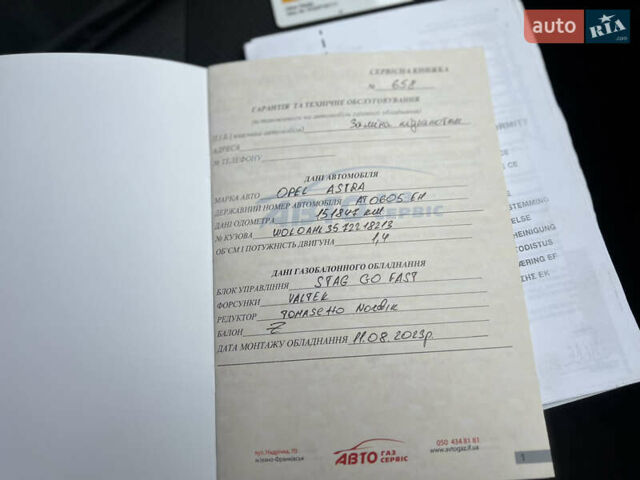 auto RIA.com
СЕРВІСНА КНИЖКА
№ 658
ГАРАНТІЯ ТА ТЕХНІЧНЕ ОБСЛУГОВУВАННЯ
(встановленого на автомобілі газового обладнання)
П.І.Б ( власника автомобіля)
АДРЕСА
№ ТЕЛЕФОНУ
ДАНІ АВТОМОБІЛЯ
МАРКА АВТО OPEL ASTRA
ДЕРЖАВНИЙ НОМЕР АВТОМОБІЛЯ AT0605EH
ДАНІ ОДОМЕТРА 151847 км
№ КУЗОВА WOLOAHL3572218213
ОБ'ЄМ І ПОТУЖНІСТЬ ДВИГУНА 1,4
ДАНІ ГАЗОБАЛОННОГО ОБЛАДНАННЯ
БЛОК УПРАВЛІННЯ STAG GO FAST
ФОРСУНКИ VALTEK
РЕДУКТОР TOMASETTO Nordik
БАЛОН
ДАТА МОНТАЖУ ОБЛАДНАННЯ 11.08.2023р.
вул. Надрічна, 70
м.Івано-Франківськ
АВТО ГАЗ СЕРВІС
050 434 81 81
www.avtogaz.if.ua
1